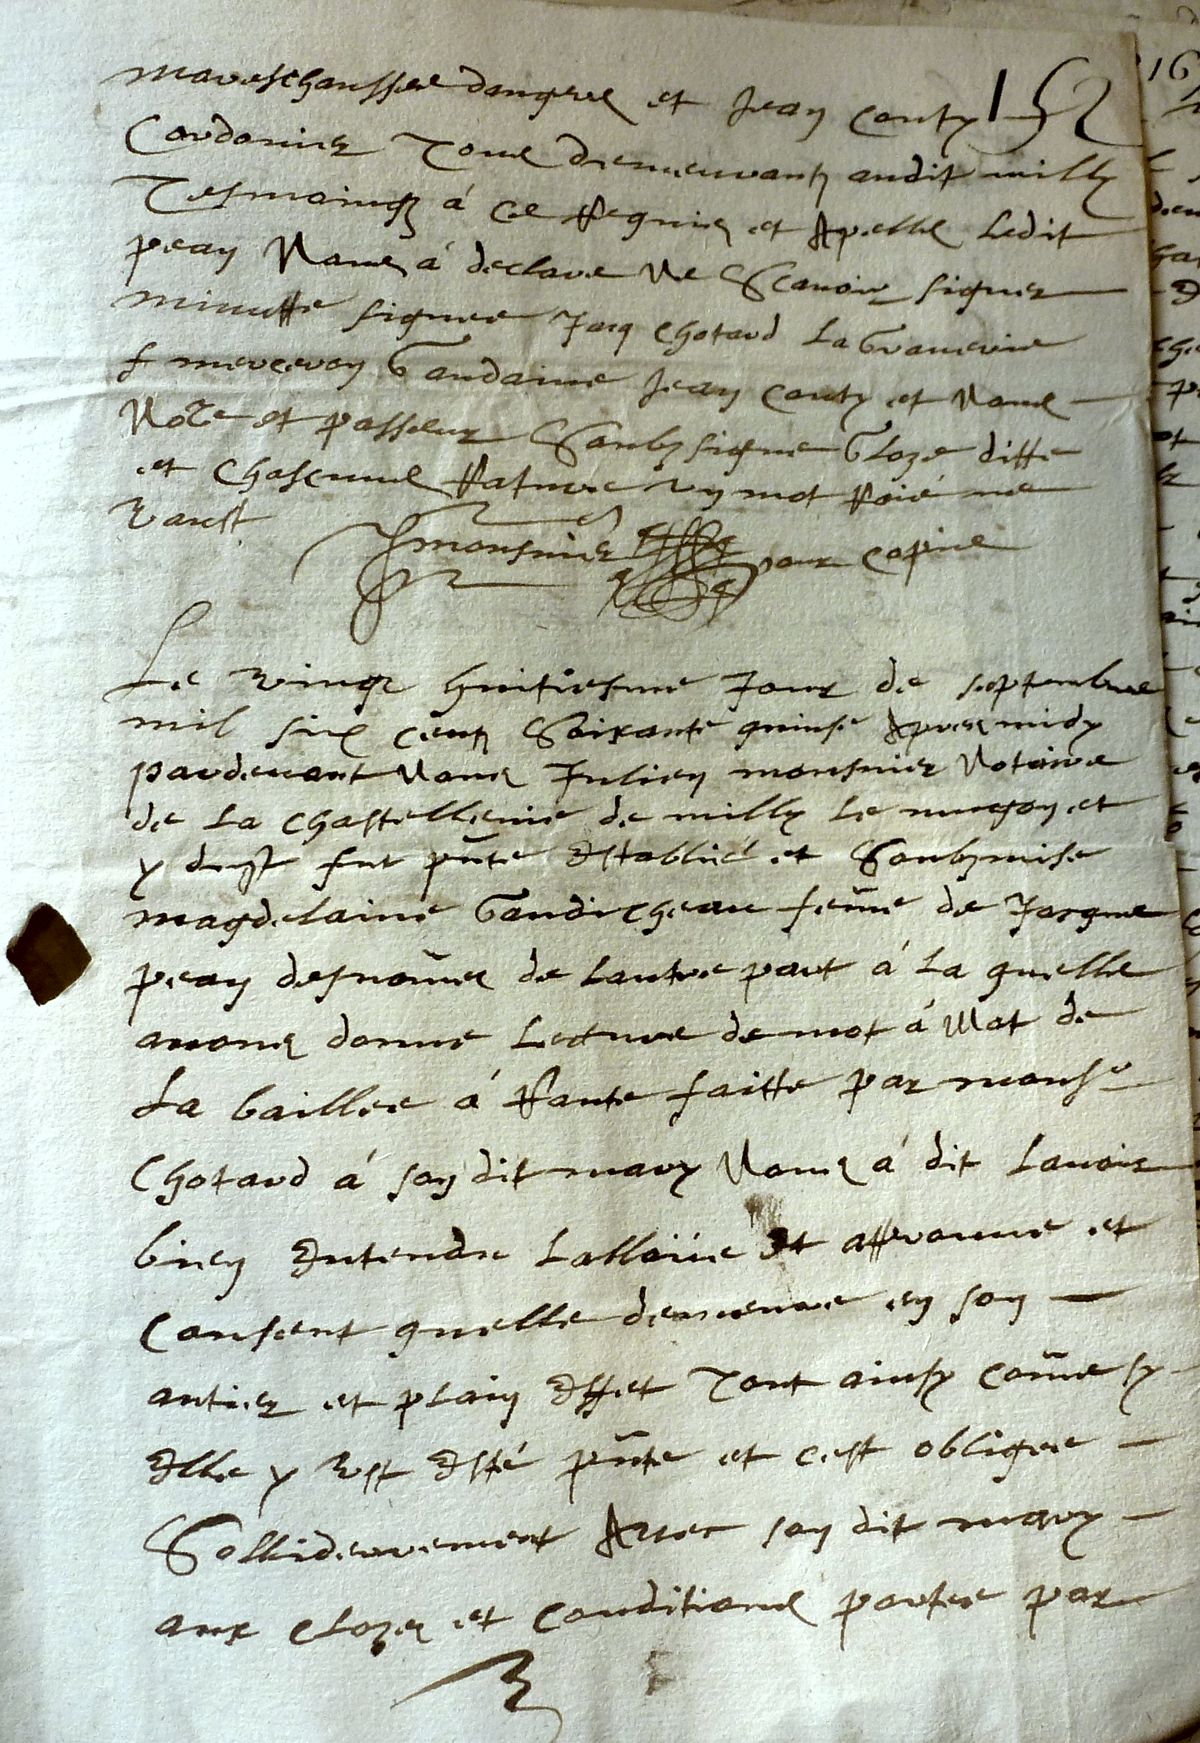 mareschaussee dangers et Jean Conty 152
Cordonier tous demeurants audit milly
Tesmoings á ce Requis et Apellés Ledit
pean Nous á declare Ne Scavoir signer
minutte signee Jacq Chotard La
f merceron Gaudaine Jean Conty et Nous
No.re et passeur Soubz signe Gloze ditte
et Chascunes Rature un mot Roié ne
vault
J monsnier pour copie
Le vingt huitiesme Jour de septembre
mil six Cents Soixante quinse Apres midy
pardevant Nous Julien monsnier Notaire
de La Chastellenie de milly Le meugon et
y fut pñte Establiée et Soubzmise
magdelaine Gaudicheau feme de Jacque
pean desnomes de Lautre part á La quelle
avons donne Lecture de mot á Mot de
La baillee á Rante faitte par monsr
Chotard á son dit mary Nous á dit Lavoir
bien Entendu Lalloüe Et aprouvue et
Consent quelle demeure en son
antier et plain Effet Tout ainsy Come sy
Elle y Eust Esté pñte et cest obligee
Sollidairement Avec son dit mary
aux Clozes et Conditions portee par